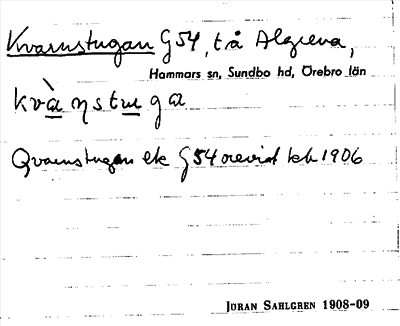 Kvarnstugan G54, tå Algrena,
Hammars sn, Sundbo hd, Örebro län
kvàηstuga
Qvarnstugan ek G54 orevid kb 1906
JÖRAN SAHLGREN 1908-09